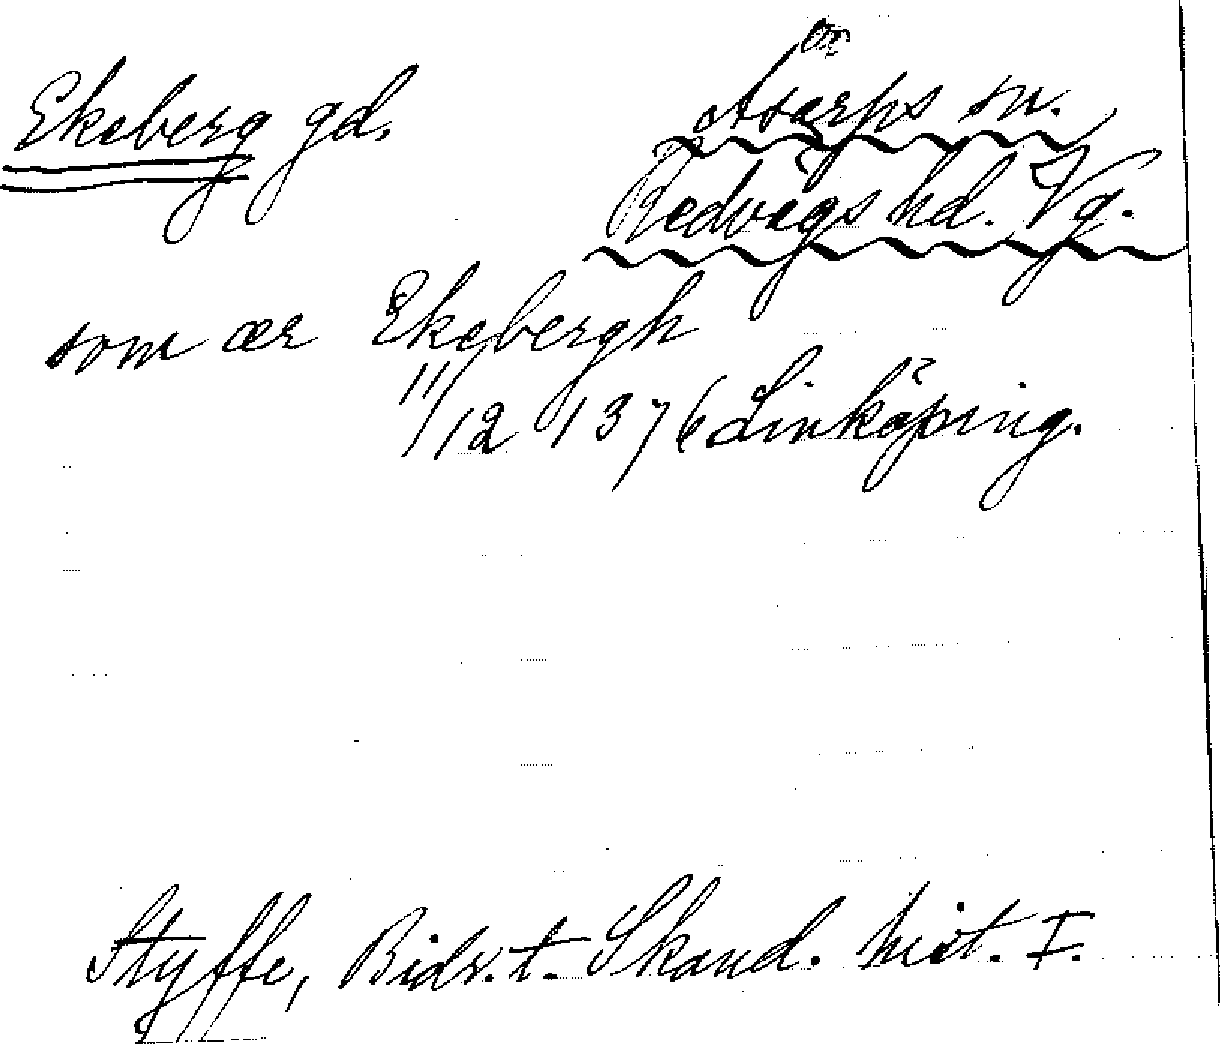 Ekeberg gd. Åsarps sn.
Redvägs hd. Vg.
som ær Ekebergh
11/12 1376 Linköping.
Styffe, Bidr. t. Skand. hist. I.